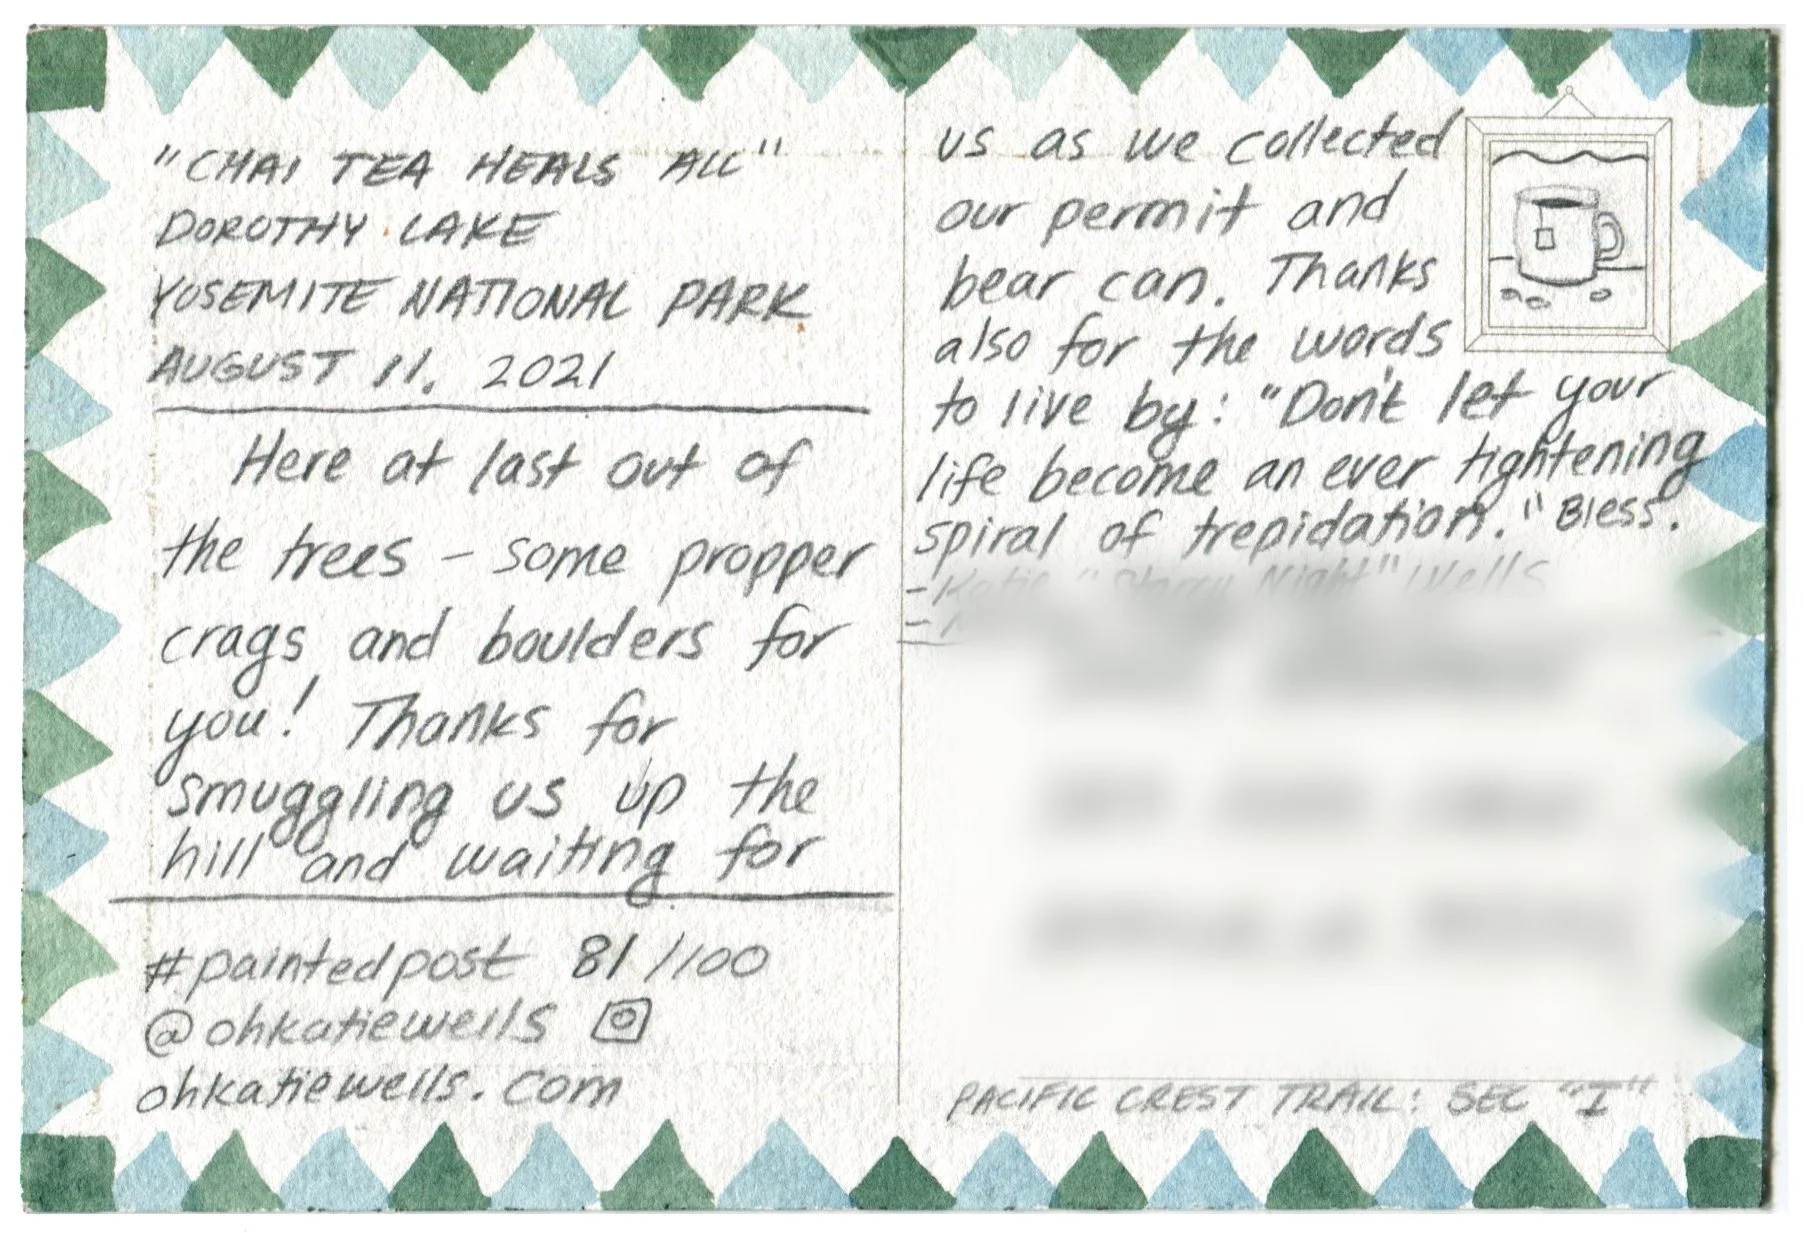 "CHAI TEA HEALS ALL"
DOROTHY LAKE
YOSEMITE NATIONAL PARK
AUGUST 11, 2021
Here at last out of
the trees - some propper
crags and boulders for
you! Thanks for
smuggling us up the
hill and waiting for
#paintedpost 81/100
@ohkatiewells
ohkatiewells.com
us as we collected
our permit and
bear can. Thanks
also for the words
to live by: "Don't let your
life become an ever tightening
spiral of trepidation." Bless.
-Katie "Starry Night" Wells
PACIFIC CREST TRAIL: SEC "I"